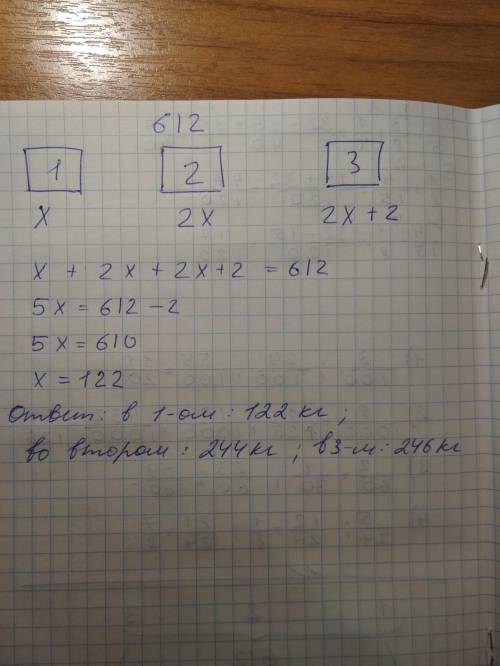 612
1 2 3
x 2x 2x + 2
x + 2x + 2x + 2 = 612
5x = 612 - 2
5x = 610
x = 122
Ответ: в 1-ом: 122 кг;
во втором: 244 кг; в 3-м: 246 кг